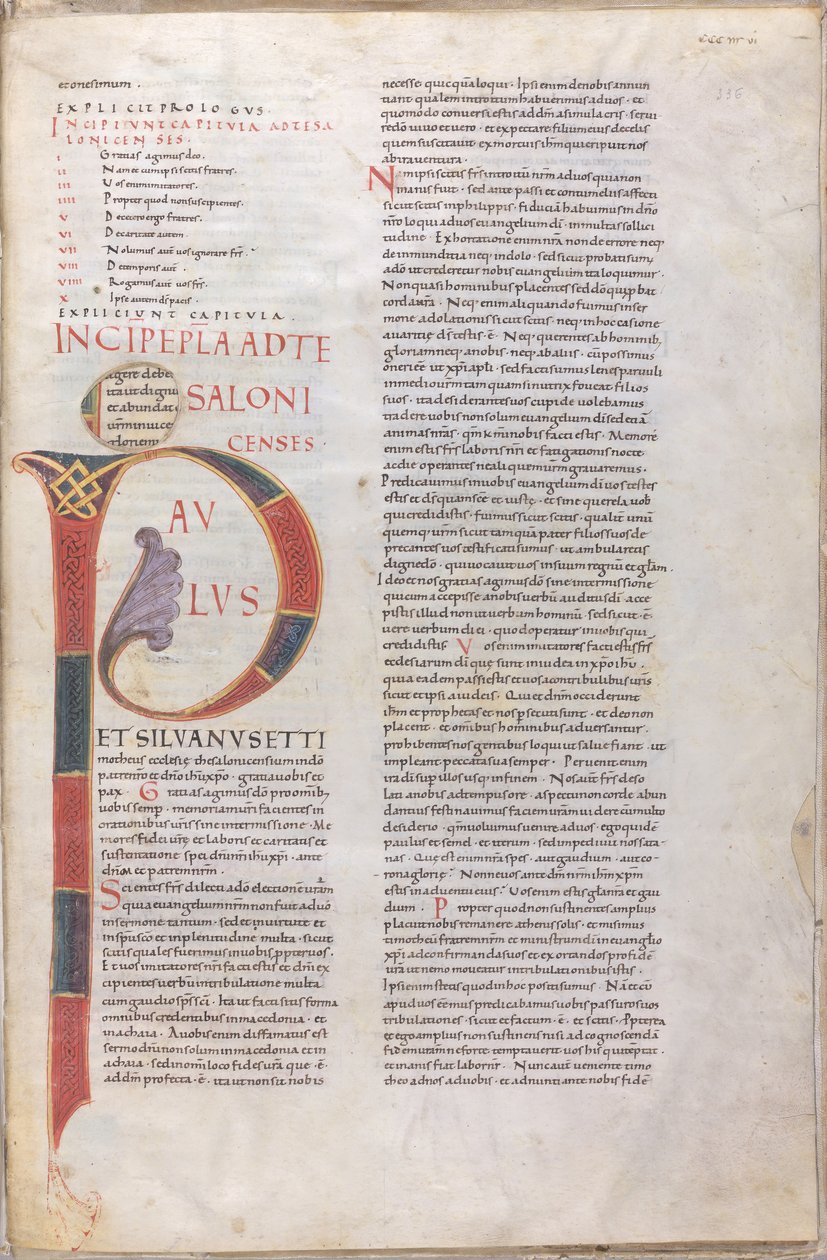 CCC nr vi
336
et onesimum .
EXPLICIT PROLOGVS .
INCIPIVNT CAPITVLA AD TESA
LONICENSES .
I Gratias agimus deo .
II Nam et cum ipsi scitis fratres .
III Uos enim imitatores .
IIII Propter quod non sustinentes .
V De cetero ergo fratres .
VI De caritate autem .
VII Nolumus aut uos ignorare frs .
VIII De temporis aut .
VIIII Rogamus aut uos frs .
X Ipse autem ds pacis .
EXPLICIUNT CAPITVLA .
INCIP EPLA AD TE
SALONI
CENSES .
agere debe
ita ut dignu
et abundat
urm in uice
gloriem
PAV
LVS
ET SILVANVS ET TI
motheus ecclesie thesalonicensium in dno
patre nro et dno ihu xpo . gratia uobis et
pax . Gratias agimus do pro omib;
uobis semp . memoriam uri facientes in
orationibus uris sine intermissione . Me
mores fidei ure et laboris et caritatis et
sustentatione spei dni nri ihu xpi . ante
dm et patrem nrm .
Scientes frs dilecti a do electione uram
quia euangelium nrm non fuit ad uo
in sermone tantum . sed et in uirtute et
in spu sco et in plenitudine multa . sicut
scitis quales fuerimus in uobis ppter uos .
Et uos imitatores nri facti estis et dni ex
cipientes uerbu in tribulatione multa
cum gaudio sps sci . Ita ut facti sitis forma
omnibus credentibus in macedonia et
in achaia . A uobis enim diffamatus est
sermo dni non solum in macedonia et in
achaia . sed in omi loco fides ura que . e .
ad dm profecta . e . ita ut non sit nobis
necesse quicqua loqui . Ipsi enim de nobis annun
tiant qualem introitum habuerimus ad uos . et
quomodo conuersi estis ad dm a simulacris . serui
re do uiuo et uero . et expectare filium eius de celis
quem suscitauit ex mortuis ihm qui eripuit nos
ab ira uentura .
Nam ipsi scitis frs introitu nrm ad uos quia non
inanis fuit . sed ante passi et contumeliis affecti
sicut scitis in philippis . fiducia habuimus in dno
nro loqui ad uos euangelium di . in multa sollici
tudine . Exhortatione enim nra non de errore neq;
de inmunditia neq; in dolo . sed sicut probati sum;
a do ut crederetur nobis euangelium ita loquimur .
Non quasi hominibus placentes sed do qui p bat
corda nra . Neq; enim aliquando fuimus in ser
mone adolationis sicut scitis . neq; in hoc casione
auaritie ds testis . e . Neq; querentes ab hominib;
gloriam neq; a nobis . neq; ab aliis . cu possimus
oneri ee ut xpi apli . sed facti sumus lenes paruuli
in medio urm tamquam si nutrix foueat filios
suos . ita desiderantes uos cupide uolebamus
tradere uobis non solum euangelium di sed etia
animas nras . qm kmi nobis facti estis . Memore
enim estis frs laboris nri et fatigationis nocte
ac die operantes ne aliquem urm grauaremus .
Predicauimus in uobis euangelium di uos testes
estis et ds quam sce et iuste . et sine querela uob
qui credidistis . fuimus sicut scitis . qualit unu
quemq; urm sicut tamqua pater filios suos de
precantes uos testificati sumus . ut ambularetis
digne do . qui uocauit uos in suum regnu et glam .
Ideo et nos gratias agimus do sine intermissione
qui cum accepisse a nobis uerbu auditus di acce
pistis illud non ut uerbum hominu . sed sicut . e
uere uerbum dei . quod operatur in uobis qui
credidistis Vos enim imitatores facti estis frs
ecclesiarum di que sunt in iudea in xpo ihu .
quia eadem passi estis et uos a contribulibus uris
sicut et ipsi a iudeis . Qui et dnm occiderunt
ihm et prophetas et nos psecuti sunt . et deo non
placent . et omibus hominibus aduersantur .
prohibentes nos gentibus loqui ut salue fiant . ut
impleant peccata sua semper . Peruenit enim
ira di sup illos usq; in finem . Nos aut frs deso
lati a nobis ad tempus ore . aspectu non corde abun
dantius festinauimus faciem uram uidere cu multo
desiderio . qm uoluimus uenire ad uos . ego quidē
paulus et semel . et iterum . sed impediuit nos sata
nas . Que est enim nra spes . aut gaudium . aut co
rona glorie . Nonne uos ante dnm nrm ihm xpm
estis in aduentu eius . Uos enim estis gla nra et gau
dium . Propter quod non sustinentes amplius
placuit nobis remanere athenis solis . et misimus
timotheu fratrem nrm et ministrum di in euanglio
xpi ad confirmanda uos et exortandos pro fide
ura ut nemo moueatur in tribulationibus istis .
Ipsi enim scitis quod in hoc positi sumus . Na et cu
apud uos eemus predicabamus uobis passuros nos
tribulationes . sicut et factum . e . et scitis . Ppterea
et ego amplius non sustinens misi ad cognoscenda
fidem uram ne forte temptauerit uos his qui teptat .
et inanis fiat labor nr . Nunc aut ueniente timo
theo ad nos a uobis . et adnuntiante nobis fide